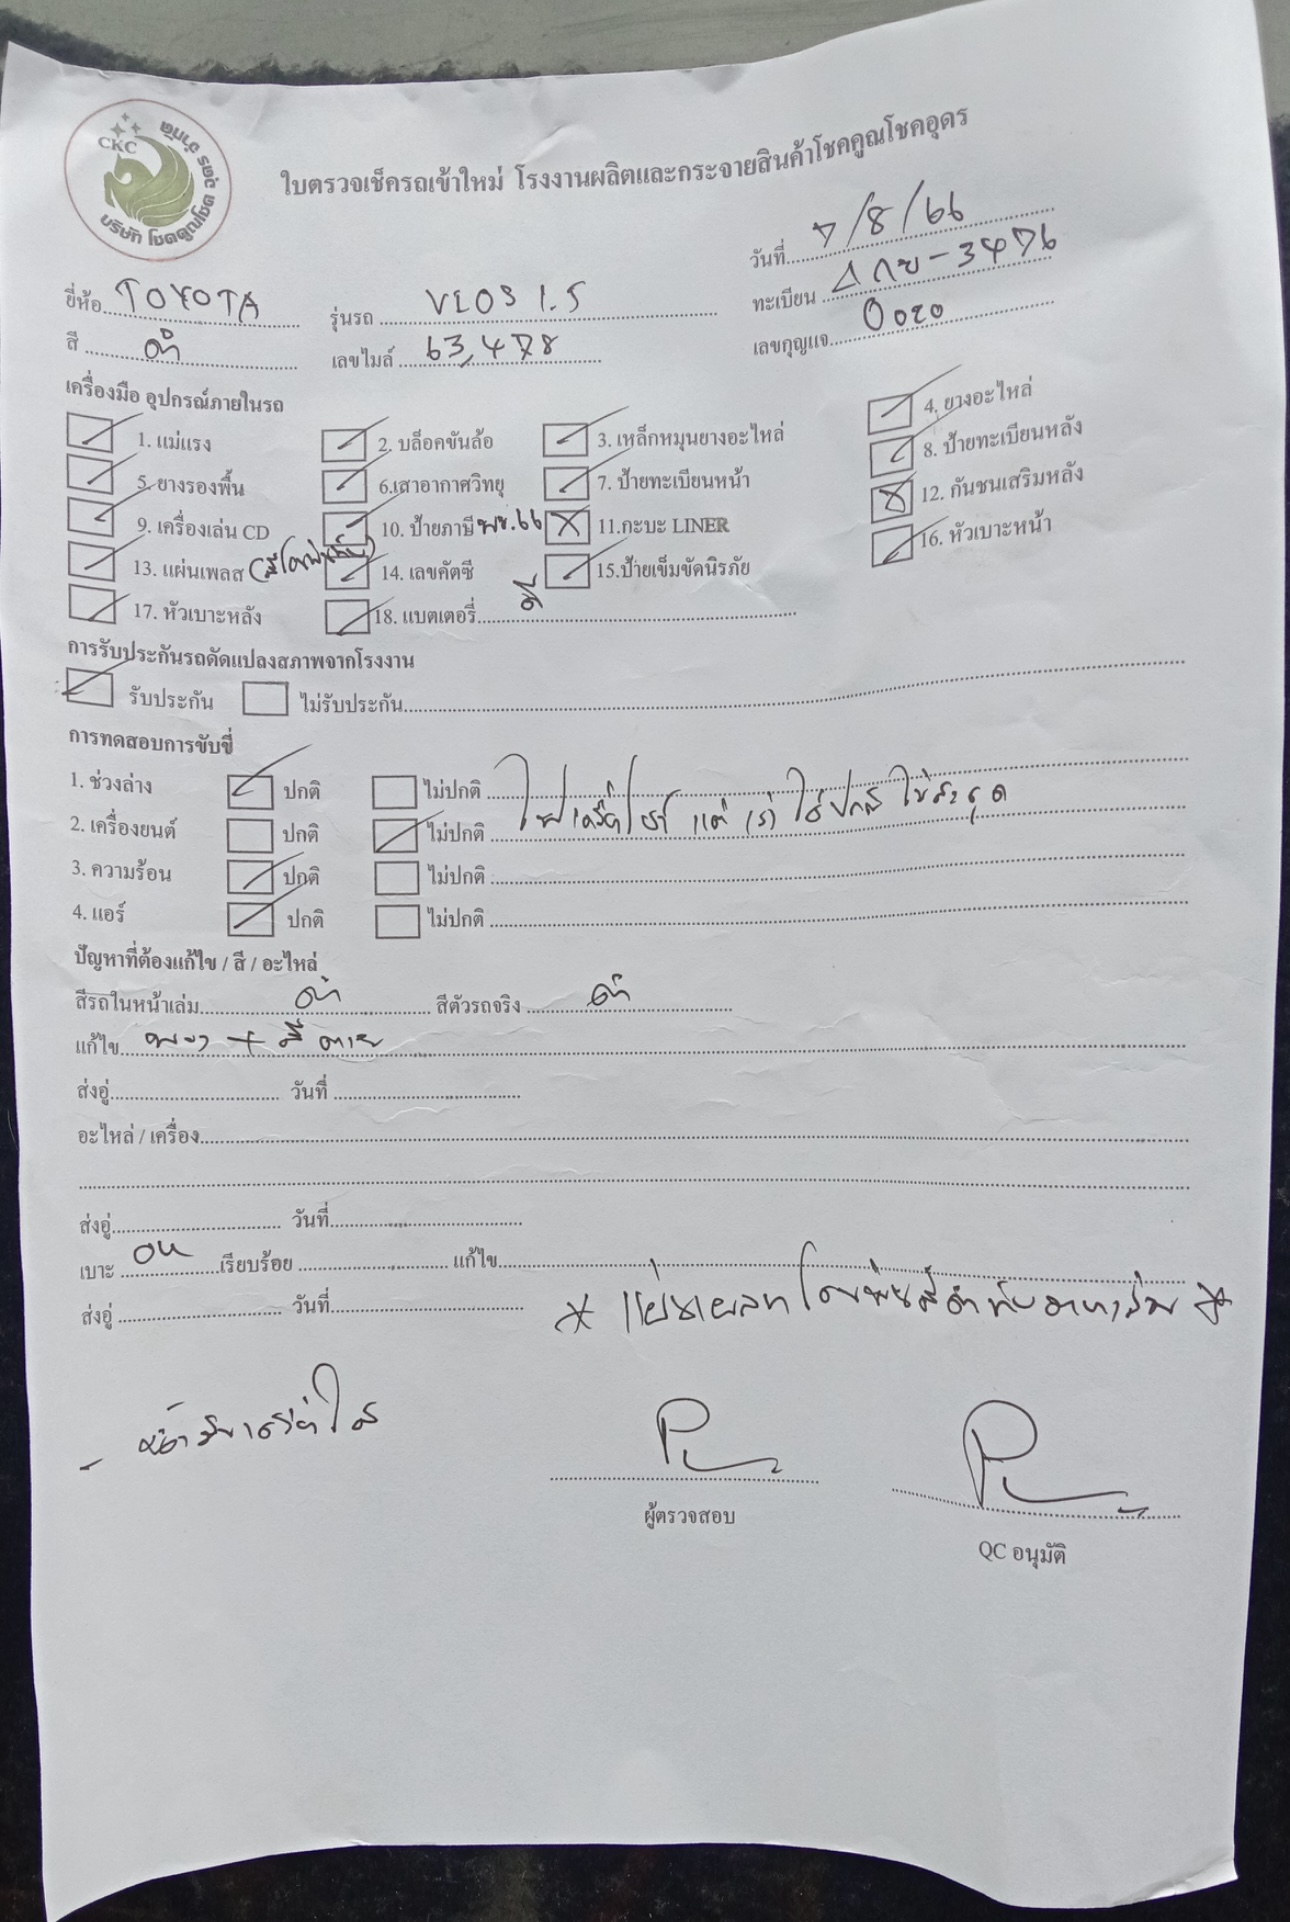 CKC
บริษัท โชคคูณโชค อุดร จำกัด
ใบตรวจเช็ครถเข้าใหม่ โรงงานผลิตและกระจายสินค้าโชคคูณโชคอุดร
วันที่ 7/8/66
ยี่ห้อ TOYOTA รุ่นรถ VIOS 1.5 ทะเบียน 3476
สี ดำ เลขไมล์ 63,478 เลขกุญแจ
เครื่องมือ อุปกรณ์ภายในรถ
1. แม่แรง 2. บล็อคขันล้อ 3. เหล็กหมุนยางอะไหล่ 4. ยางอะไหล่
5. ยางรองพื้น 6.เสาอากาศวิทยุ 7. ป้ายทะเบียนหน้า 8. ป้ายทะเบียนหลัง
9. เครื่องเล่น CD 10. ป้ายภาษี พย.66 11.กะบะ LINER 12. กันชนเสริมหลัง
13. แผ่นเพลส 14. เลขคัตซี 15.ป้ายเข็มขัดนิรภัย 16. หัวเบาะหน้า
17. หัวเบาะหลัง 18. แบตเตอรี่ ดี
การรับประกันรถดัดแปลงสภาพจากโรงงาน
รับประกัน ไม่รับประกัน
การทดสอบการขับขี่
1. ช่วงล่าง ปกติ ไม่ปกติ
2. เครื่องยนต์ ปกติ ไม่ปกติ
3. ความร้อน ปกติ ไม่ปกติ
4. แอร์ ปกติ ไม่ปกติ
ปัญหาที่ต้องแก้ไข / สี / อะไหล่
สีรถในหน้าเล่ม ดำ สีตัวรถจริง ดำ
แก้ไข
ส่งอู่ วันที่
อะไหล่ / เครื่อง
ส่งอู่ วันที่
เบาะ เรียบร้อย แก้ไข
ส่งอู่ วันที่
ผู้ตรวจสอบ
QC อนุมัติ